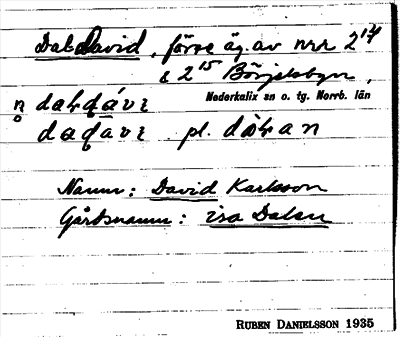 Dal David, förre äg. av nrr 2¹⁴
& 2¹⁵ Börjelsbyn,
Nederkalix sn o. tg. Norrb. län
daḷdávı
dadávı pl. dàḷan
Namn: David Karlsson
Gårdsnamn: isa Dalen
RUBEN DANIELSSON 1935